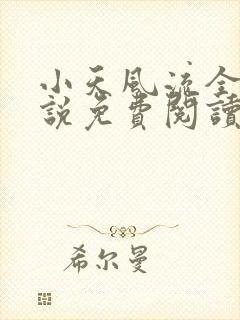 小天風流全
說免費閱讀
希尔曼